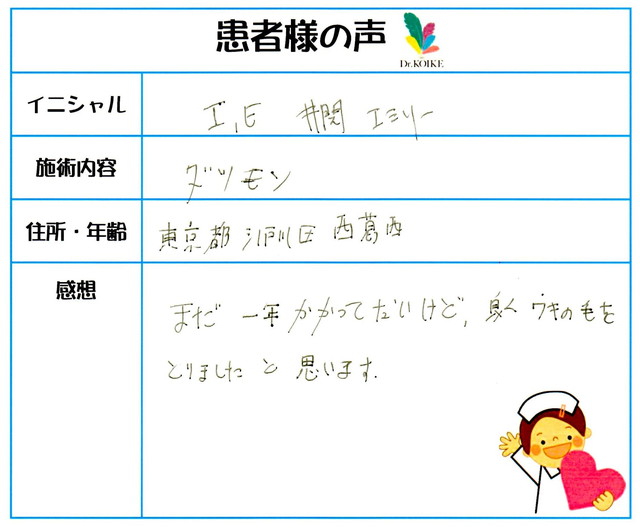 患者様の声
Dr.KOIKE
イニシャル
I.E 井関 エミリー
施術内容
ダツモン
住所・年齢
東京都 江戸川区 西葛西
感想
まだ 一年かかってだいけど, 良く ワキの毛を
とりましたと 思います.